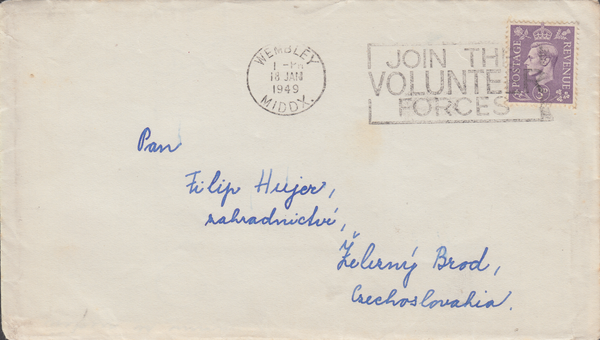 WEMBLEY
1 - PM
18 JAN
1949
MIDDX.
JOIN THE
VOLUNTEER
FORCES
POSTAGE
REVENUE
3D
Pan
Filip Hujer,
zahradnictví,
Železný Brod,
Czechoslovakia.